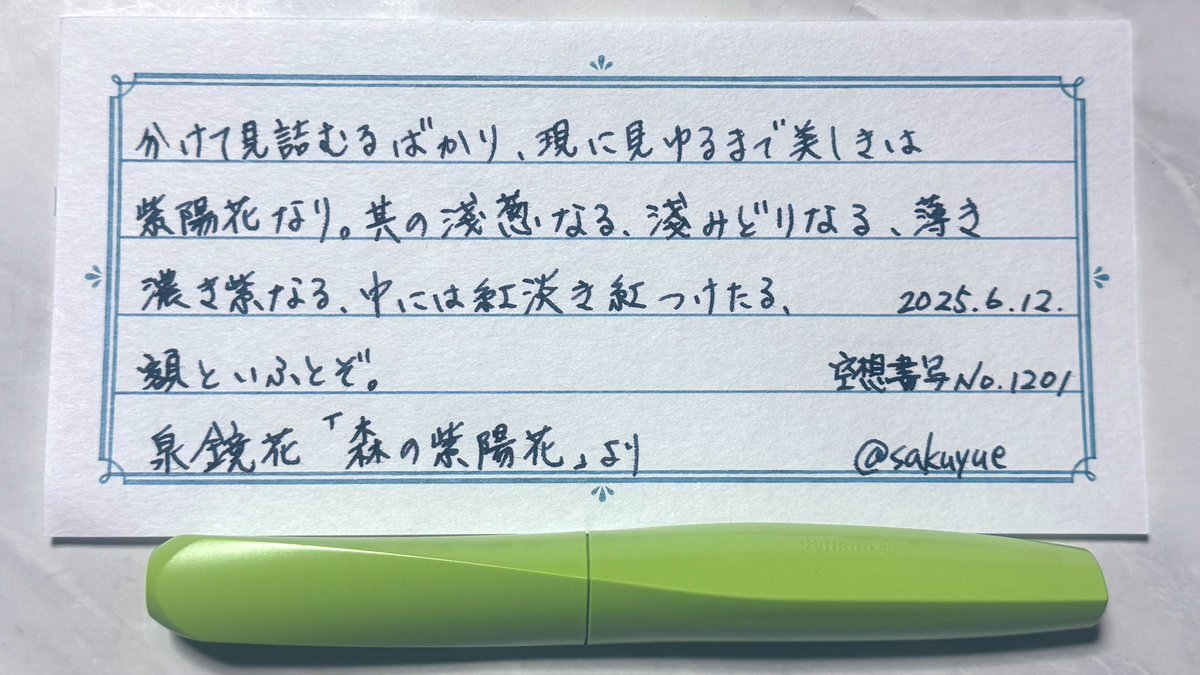 分けて見詰むるばかり、現に見ゆるまで美しきは
紫陽花なり。其の淺葱なる、淺みどりなる、薄き
濃き紫なる、中には紅淡き紅つけたる、
2025.6.12.
額といふとぞ。
空想書写No.1201
泉鏡花「森の紫陽花」より
@sakuyue
Pelikan